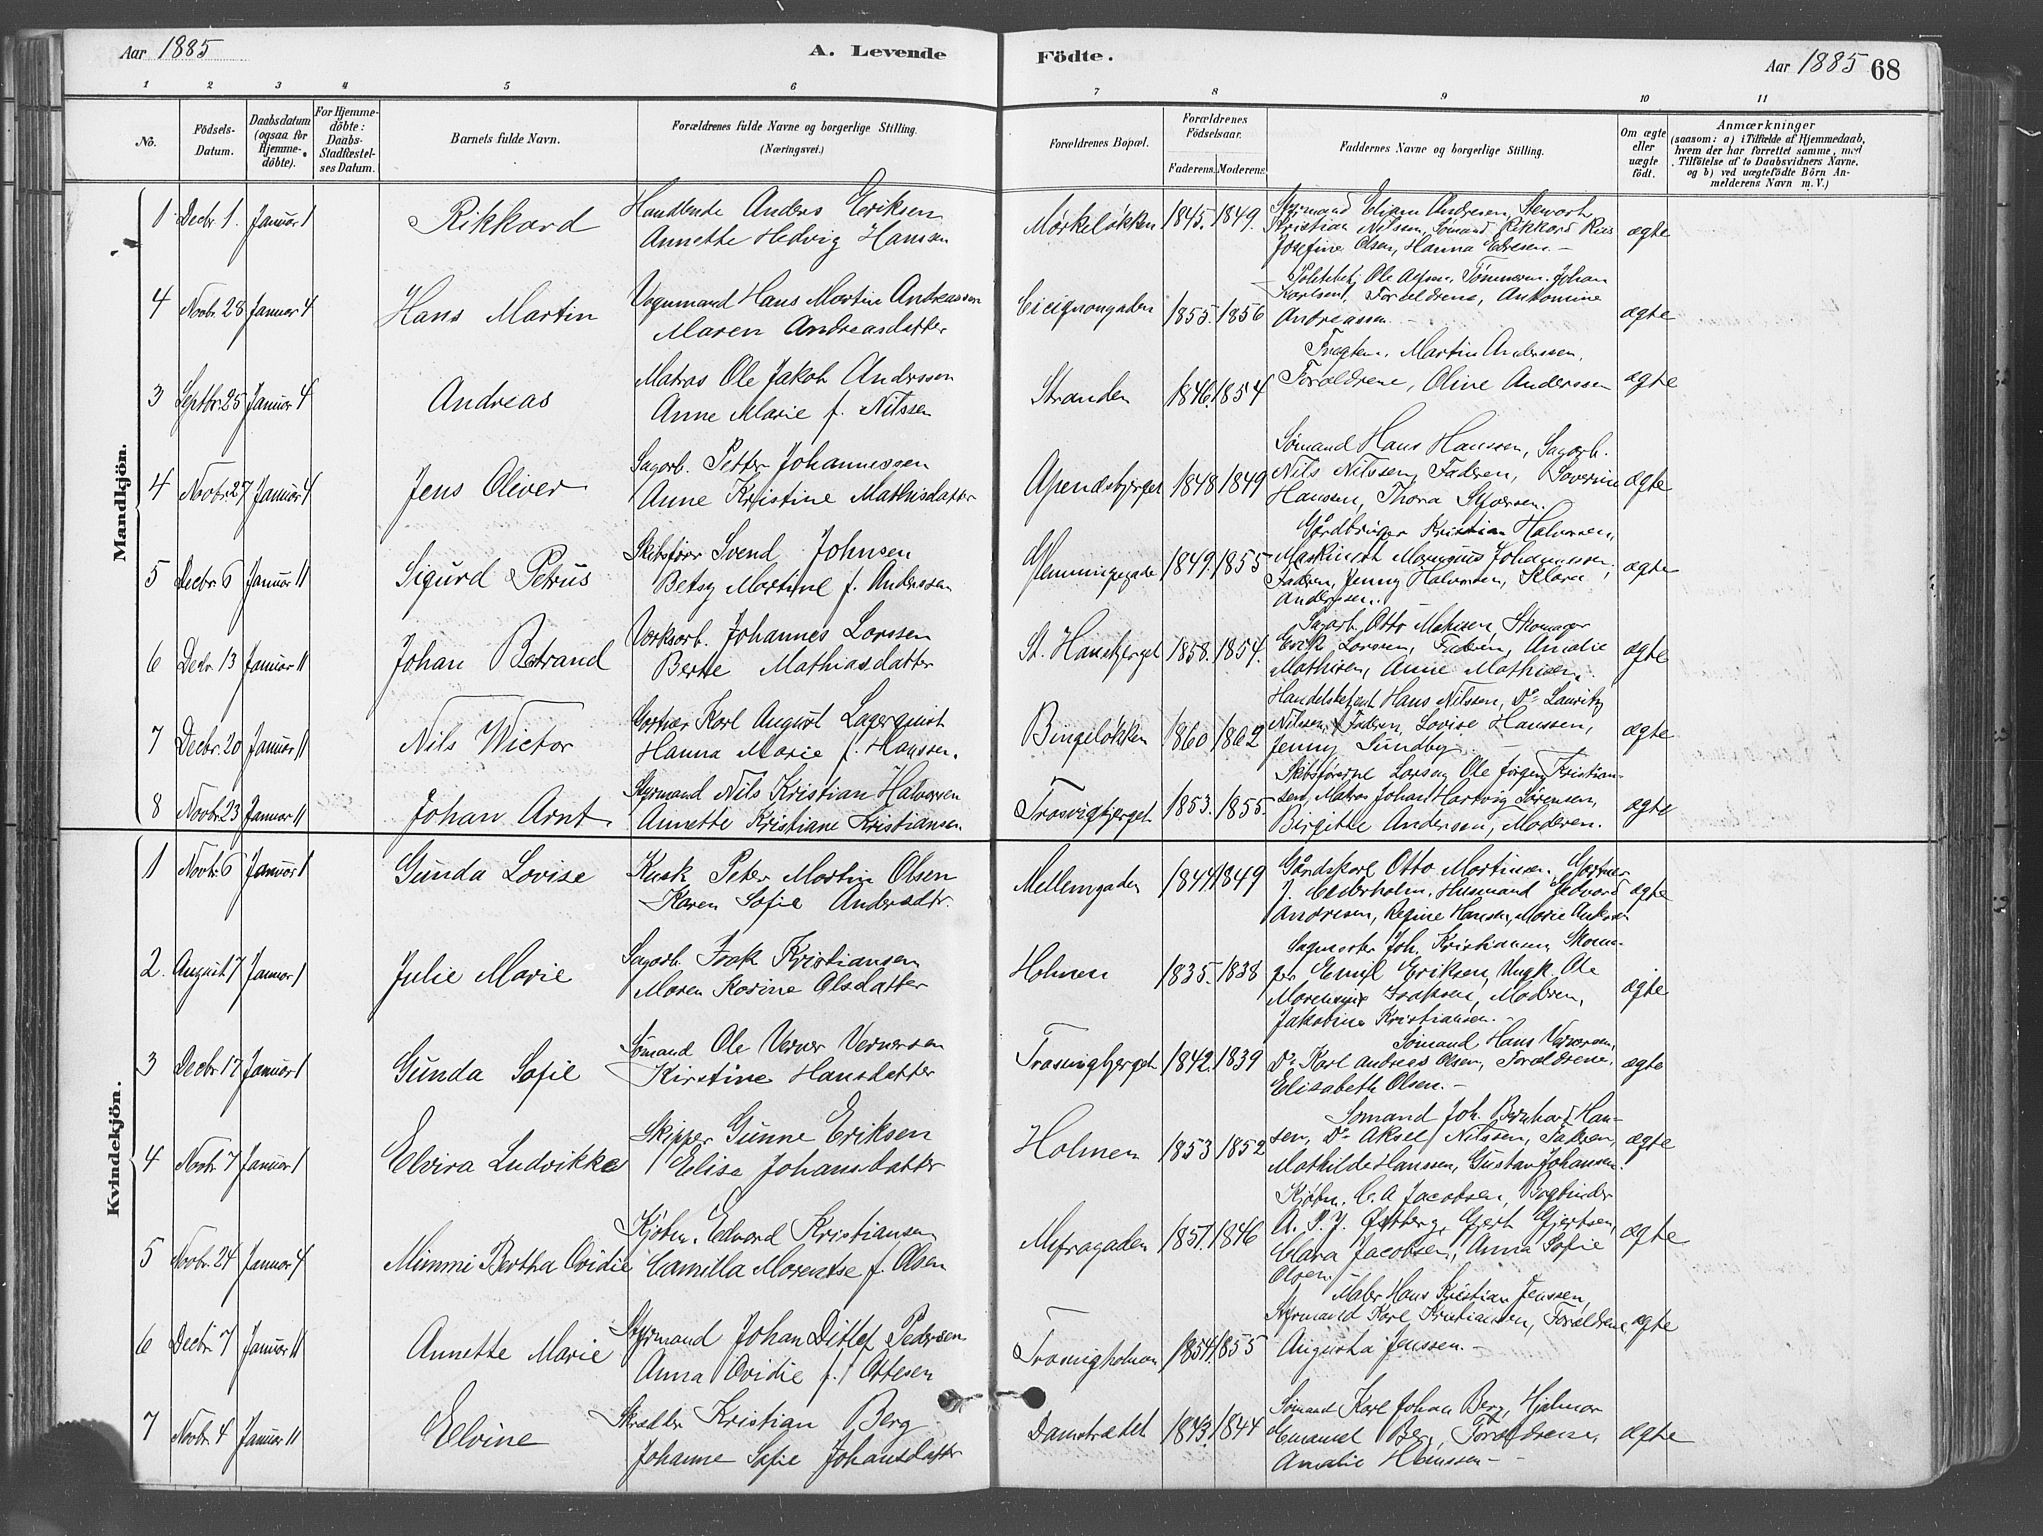 Aar 1885
A. Levende
Födte.
Aar 1885 68
1 2 3 4 5 6 7 8 9 10 11
No.
Födsels-
Datum.
Daabsdatum
(ogsaa for
Hjemme-
döbte).
For Hjemme-
döbte:
Daabs-
Stadfæstel-
ses Datum.
Barnets fulde Navn.
Forældrenes fulde Navne og borgerlige Stilling.
(Næringsvei.)
Forældrenes Bopæl.
Forældrenes
Födselsaar.
Faderens. Moderens.
Faddernes Navne og borgerlige Stilling.
Om ægte
eller
uægte
födt.
Anmærkninger
(saasom: a) i Tilfælde af Hjemmedaab,
hvem der har forrettet samme, med
Tilföielse af to Daabsvidners Navne,
og b) ved uægtefödte Börn An-
melderens Navn m. V.)
Mandkjön.
1 Decbr 1. Januar 1 Rikkard
Handlende Anders Eriksen
Annette Hedvig Hansen
Mørkeløkken 1845. 1849.
Styrmand Andresen, Stewart
Kristian Nilssen, Sømand Rikkard
Josefine Olsen, Hanna
ægte
4 Novbr. 28 Januar 4 Hans Martin
Vognmand Hans Martin Andreassen
Maren Andreasdatter
Cicignongaden 1855. 1856
Politibtj. Ole Olsen, Tømmerm. Johan
Karlsen, Forældrene, Antomine
Andreassen. -
ægte
3 Septbr. 25 Januar 4 Andreas
Matros Ole Jakob Anderssen
Anne Marie f. Nilssen
Stranden 1846. 1854
Martin Anderssen,
Forældrene, Oline Anderssen
ægte
4 Novbr. 27 Januar 4 Jens Oliver
Sagarb. Petter Johannessen
Anne Kristine Mathisdatter
Apenæsbjerget 1848 1849
Sømand Hans Hanssen, Sagarb.
Nils Nilssen, Faderen, Soverine
Hansen, Thora
ægte
5 Decbr. 6 Januar 11 Sigurd Petrus
Skibsfører Svend Johnsen
Betsy Martine f. Anderssen
Glemmingegade 1849. 1855
Gårdbruger Kristian Halvorsen,
Maskinist Johannessen,
Faderen, Jenny Halvorsen, Klara
Anderssen.
ægte
6 Decbr. 13 Januar 11 Johan Betrand
Værksarb. Johannes Larssen
Berte Mathiasdatter
St. Hansbjerget 1858. 1854.
Sagarb. Otto Skomager
Erik Larssen, Faderen, Amalie
Mathisen, Anne Mathisen,
ægte
7 Decbr. 20 Januar 11 Nils Wictor
Gartner Karl August Lagerquist
Hanna Marie f. Hanssen.
Bingeløkken 1860 1862
Handelsbetjent Hans Nilssen, Do Lauritz
Nilssen, Faderen, Lovise Hanssen,
Jenny Sundby -
ægte
8 Novbr. 23 Januar 11 Johan Arnt.
Styrmand Nils Kristian Halvorsen
Annette Kristiane Kristiansen.
Trosvigbjerget 1853. 1855.
Skibsførerne Larsen, Ole Jørgen Kristian-
sen, Matros Johan Hartvig Sørensen,
Birgitte Andersen, Moderen.
ægte
Kvindekjön.
1 Novbr. 6 Januar 1 Gunda Lovise
Kusk Peter Martin Olsen
Karen Sofie Andersdtr.
Mellemgaden 1844 1849
Gårdskarl Otto Martinsen, Gartner
J. Cederholm, Husmand Edvard
Andresen, Regine Hansen, Marie
ægte
2. August 7 Januar 1 Julie Marie
Sagarb. Isak Kristiansen
Maren Karine Olsdatter
Holmen 1835. 1838
Joh. Kristiansen, Skoma-
ger Emil Eriksen, Ungk. Ole
Isaksen, Moderen,
Jakobine Kristiansen. -
ægte
3 Decbr. 17 Januar 1 Gunda Sofie
Sømand Ole Verner Vernersen
Kirstine Hansdatter
Trosvigbjerget 1842. 1839
Sømand Hans Vernersen,
Do Karl Andreas Olsen, Forældrene,
Elisabeth Olsen. -
ægte
4 Novbr. 7 Januar 1 Elvira Ludvikke
Skipper Gunne Eriksen
Elise Johansdatter
Holmen 1853 1852
Sømand Joh. Bernhard Han-
sen, Do Aksel Nilssen, Faderen,
Mathilde Hanssen, Gustav Johansen.
ægte
5 Novbr. 24 Januar 4 Mimmi Bertha Ovidie
Kjøbm. Edvard Kristiansen
Camilla Morentse f. Olsen
1851. 1846
Kjøbm. C. A. Jacobsen, Bogbinder
A. P. J. Østberg, Gjert Gjertsen,
Clara Jacobsen, Anna Sofie
Olsen.
ægte
6 Decbr. 7 Januar 11 Annette Marie
Styrmand Johan Ditlef Pedersen
Anna Ovidie f. Ottesen
Trosvigholmen 1854. 1855
Maler Hans Kristian Jenssen,
Styrmand Karl Kristiansen, Forældrene
Augusta Jenssen. -
ægte
7 Novbr. 4 Januar 11 Elvine
Skrædder Kristian Berg
Johanne Sofie Johansdatter
Damstrædet 1843. 1844
Sømand Karl Johan Berg, Hjalmar
Emanuel Berg, Forældrene,
Amalie -
ægte